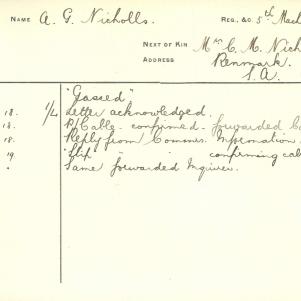 NAME A. G. Nicholls. REG., &C. 5th Mach
NEXT OF KIN Mrs C. M. Nich
ADDRESS Renmark.
S.A.
"Gassed"
18. 1/4 Letter acknowledged.
18. P/Cable confirmed - forwarded C
18. Reply from Commrs. Information
19. Slip " confirming cab
" Same forwarded Inquirer.